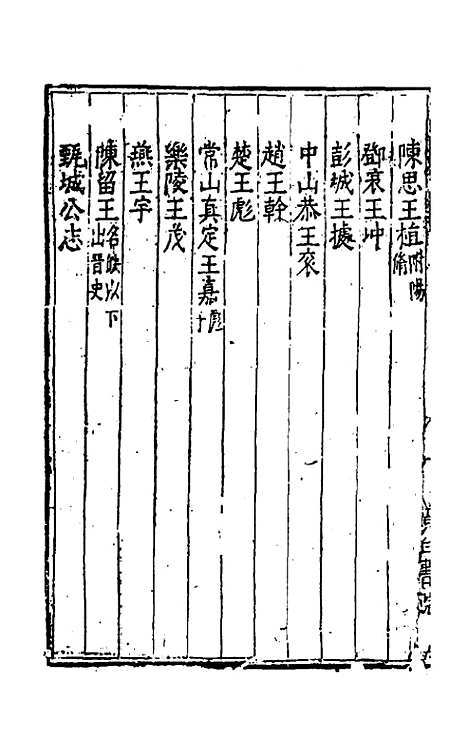 陳思王植附楊脩
鄧哀王冲
彭城王據
中山恭王袞
趙王幹
楚王彪
常山真定王嘉彪子
樂陵王茂
燕王宇
陳留王名缺以下出晋史
甄城公志